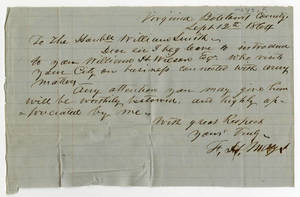 Virginia Botetourt County
Sept 12th 1864
To The Honble William Smith
Dear Sir I beg leave to introduce
to you William H Wilson Esq. who visits
your City on business connected with army
matters.
Any attention you may give him
will be worthily bestowed, and highly ap-
preciated by me.
With great Respect
Yours Truly
F. H.